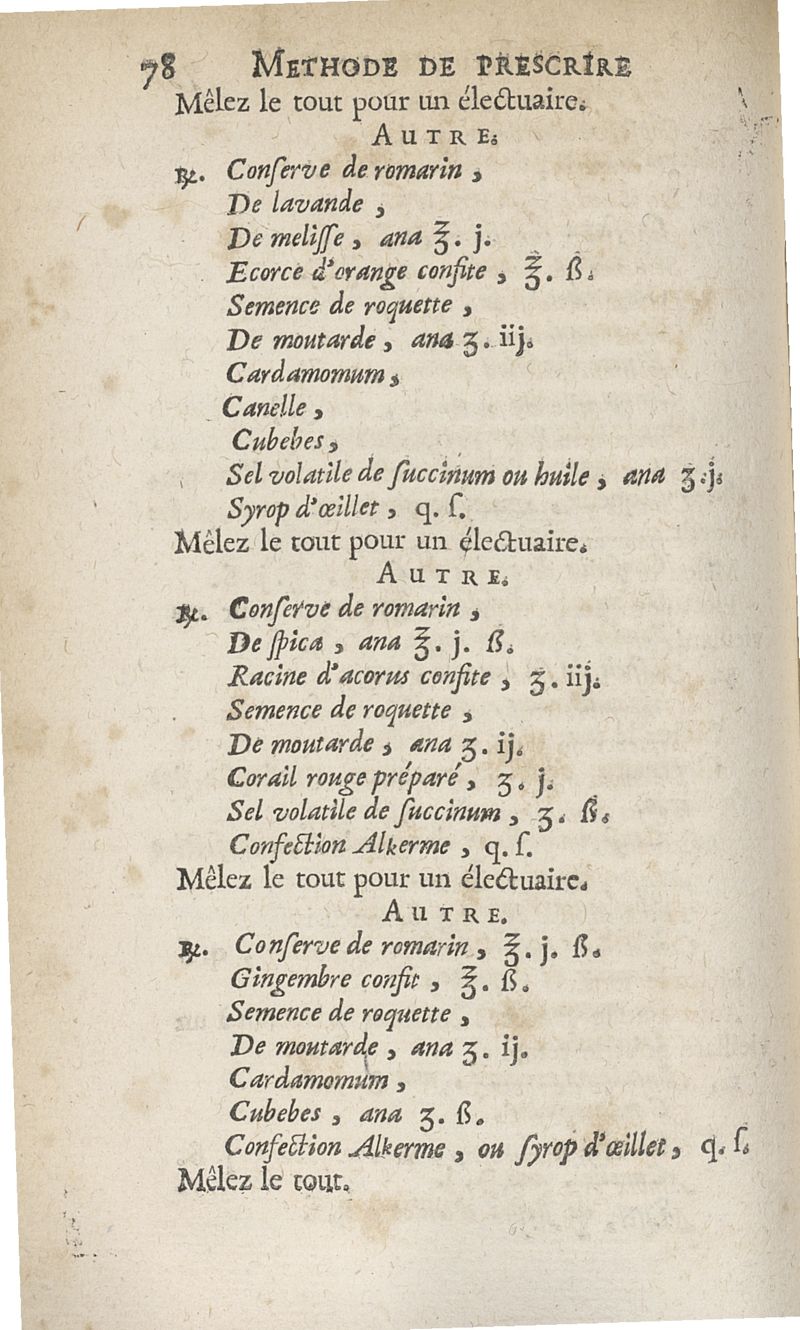 78 METHODE DE PRESCRIRE
Mêlez le tout pour un électuaire.
AUTRE.
℞. Conſerve de romarin,
De lavande,
De meliſſe, ana ℥. j.
Ecorce d'orange confite, ℥. ß.
Semence de roquette,
De moutarde, ana ʒ. iij.
Cardamomum,
Canelle,
Cubebes,
Sel volatile de ſuccinum ou huile, ana ʒ. j.
Syrop d'œillet, q. ſ.
Mêlez le tout pour un électuaire.
AUTRE.
℞. Conſerve de romarin,
De ſpica, ana ℥. j. ß.
Racine d'acorus confite, ʒ. iij.
Semence de roquette,
De moutarde, ana ʒ. ij.
Corail rouge préparé, ʒ. j.
Sel volatile de ſuccinum, ʒ. ß.
Confection Alkerme, q. ſ.
Mêlez le tout pour un électuaire.
AUTRE.
℞. Conſerve de romarin, ℥. j. ß.
Gingembre confit, ℥. ß.
Semence de roquette,
De moutarde, ana ʒ. ij.
Cardamomum,
Cubebes, ana ʒ. ß.
Confection Alkerme, ou ſyrop d'œillet, q. ſ.
Mêlez le tout.